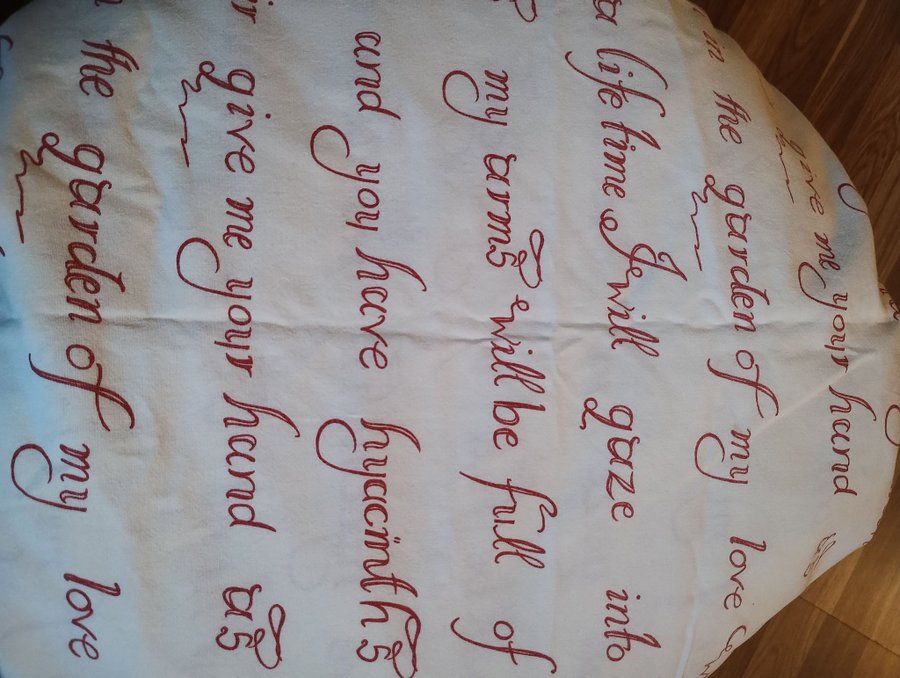 give me your hand as
in the garden of my love
a lifetime I will gaze into
my arms will be full of
and you have hyacinths
give me your hand as
the garden of my love